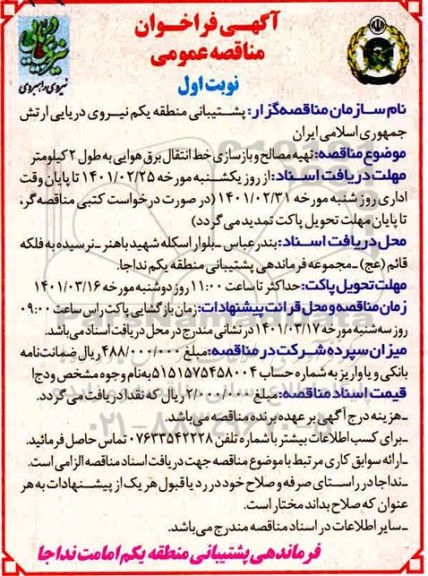 آگهی فراخوان
مناقصه عمومی
نوبت اول
نیروی راهبردی
نام سازمان مناقصه‌گزار: پشتیبانی منطقه یکم نیروی دریایی ارتش
جمهوری اسلامی ایران
موضوع مناقصه: تهیه مصالح و بازسازی خط انتقال برق هوایی به طول ۲ کیلومتر
مهلت دریافت اسناد: از روز یکشنبه مورخه ۱۴۰۱/۰۲/۲۵ تا پایان وقت
اداری روز شنبه مورخه ۱۴۰۱/۰۲/۳۱ (در صورت درخواست کتبی مناقصه‌گر،
تا پایان مهلت تحویل پاکت تمدید می گردد)
محل دریافت اسناد: بندرعباس ـ بلوار اسکله شهید باهنر ـ نرسیده به فلکه
قائم (عج) ـ مجموعه فرماندهی پشتیبانی منطقه یکم نداجا.
مهلت تحویل پاکت: حداکثر تا ساعت ۱۱:۰۰ روز دوشنبه مورخه ۱۴۰۱/۰۳/۱۶
زمان مناقصه و محل قرائت پیشنهادات: زمان بازگشایی پاکت راس ساعت ۰۹:۰۰
روز سه شنبه مورخه ۱۴۰۱/۰۳/۱۷ در نشانی مندرج در محل دریافت اسناد می‌باشد.
میزان سپرده شرکت در مناقصه: مبلغ ۴۸۸/۰۰۰/۰۰۰ ریال ضمانت‌نامه
بانکی و یا واریز به شماره حساب ۵۱۵۱۵۷۵۴۵۸۰۰۴ به نام وجوه مشخص ودجا
قیمت اسناد مناقصه: مبلغ ۲/۰۰۰/۰۰۰ ریال که نقدا دریافت می گردد.
ـ هزینه درج آگهی بر عهده برنده مناقصه می باشد.
ـ برای کسب اطلاعات بیشتر با شماره تلفن ۰۷۶۳۳۵۴۲۲۲۸ تماس حاصل فرمائید.
ـ ارائه سوابق کاری مرتبط با موضوع مناقصه جهت دریافت اسناد مناقصه الزامی است.
ـ نداجا در راستای صرفه و صلاح خود در رد یا قبول هر یک از پیشنهادات به هر
عنوان که صلاح بداند مختار است.
ـ سایر اطلاعات در اسناد مناقصه مندرج می‌باشد.
فرماندهی پشتیبانی منطقه یکم امامت نداجا